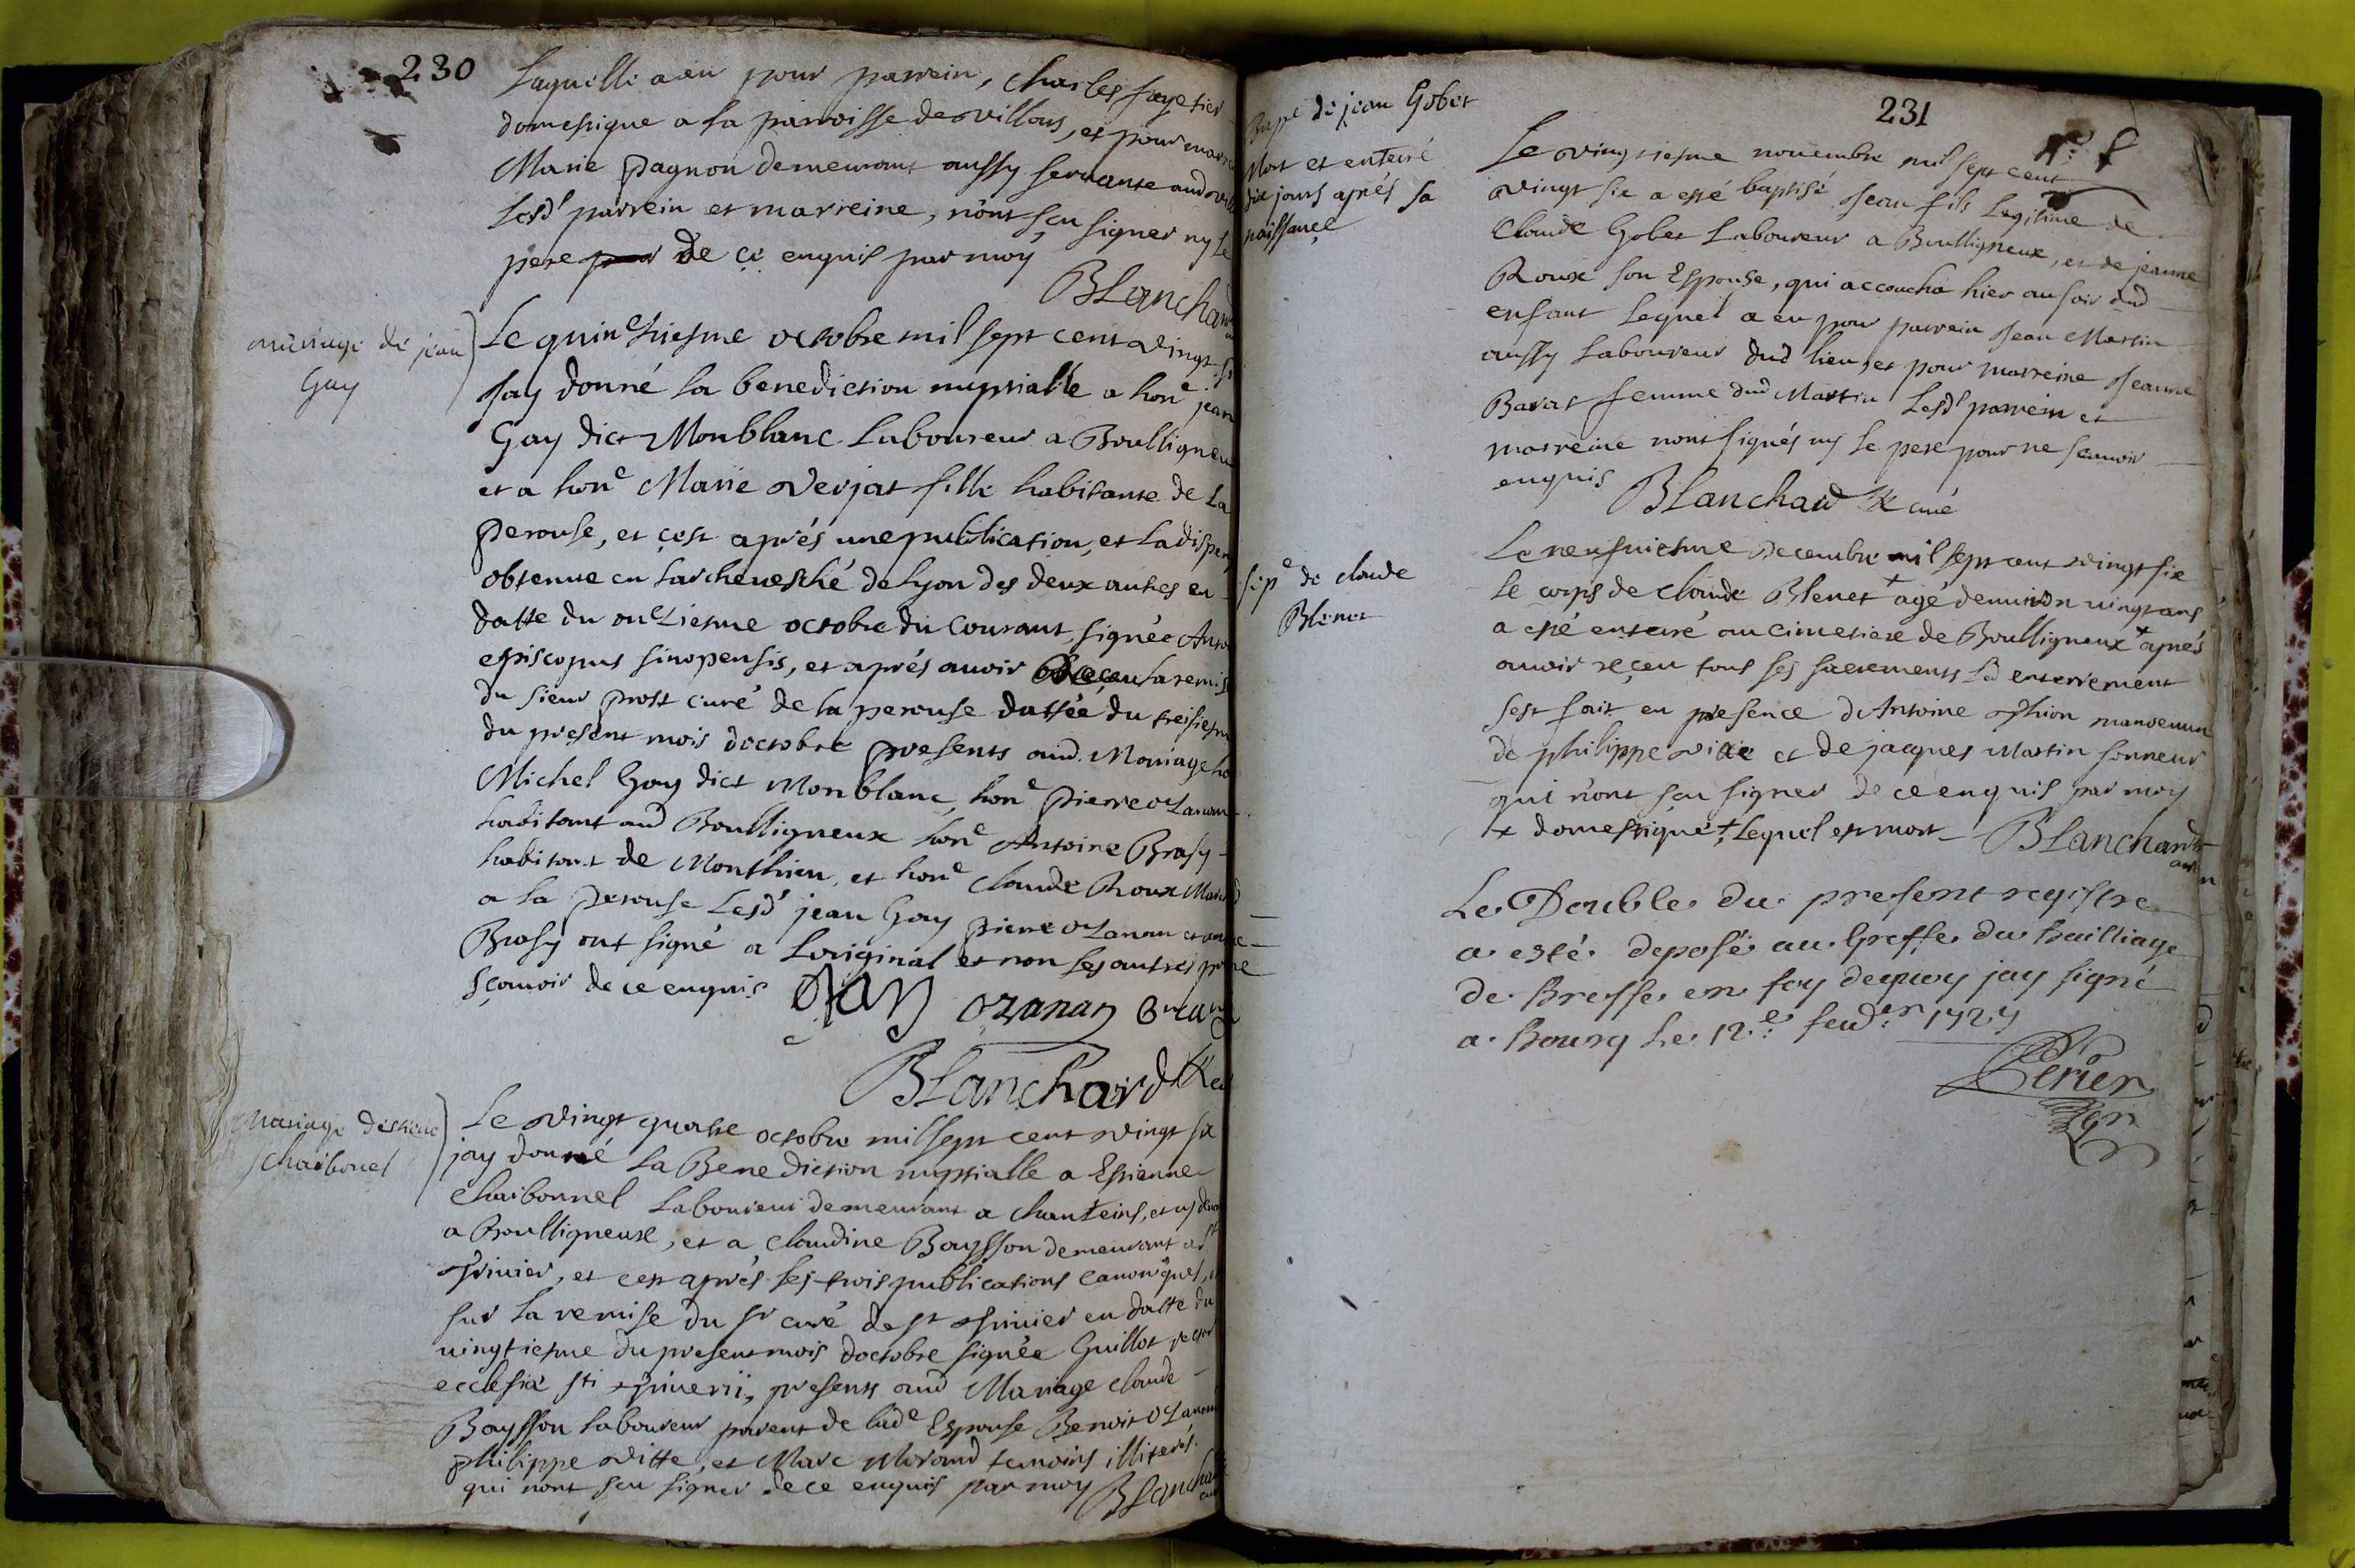 230
Laquelle a eu pour parrein, Charles fayetier
domestique a la parroisse de villars, et pour marre
Marie Pagnon demeurant aussy servante aud vill
Lesd parrein et marreine, n'ont sçu signer ny le
pere de ce enquis par moy
Blanchard
mariage de jean
Gay
Le quinziesme octobre mil sept cent vingt si
Jay donné la benediction nuptialle a hone jean
Gay dict Monblanc Laboureur a Boulligneu
et a hone Marie Verjat fille habitante de La
Perouse, et c'est aprés une publication, et la dispen
obtenue en Larchevesché de Lyon des deux autres en
datte du onziesme octobre du courant, signée Anto
episcopus sinopensis, et aprés avoir receu la remis
du sieur prost curé de la perouse dattée du treisiesm
du present mois d'octobre presents aud. Mariage ho
Michel Gay dict Monblanc, hone Pierre Ozanan
habitant aud Boulligneux hone Antoine Brasy
habitant de Monthieu, et hone Claude Roux Mar
a la Perouse Lesd jean Gay Pierre Ozanan et an
Brasy ont signé a Loriginal et non les autres pour ne
sçavoir de ce enquis
Gay Ozanan
Blanchard
mariage destiene
Charbonel
Le vingt quatre octobre mil sept cent vingt six
jay donné La Benediction nuptialle a Estienne
Charbonnel Laboureur demeurant a chanteins, et cy dev
a Boulligneux, et a Claudine Boysson demeurant a St
Trivier, et c'est aprés les trois publications canoniques, e
sur la remise du sr curé de st Trivier en datte du
vingtiesme du present mois d'octobre signée Guillot rector
ecclesiæ sti Triverii, presents aud Mariage claude
Boysson laboureur parent de lade Espouse Benoit Ozanan
philippe vitte, et Marc Morand temoins illiterés
qui n'ont sçu signer de ce enquis par moy Blanchard
curé
231
Bape de jean Gobet
Mort et enterré
dix jours aprés sa
naissance
Le vingtiesme novembre mil sept cent
vingt six a esté baptisé Jean fils Legitime de
Claude Gobet Laboureur a Boulligneux, et de jeanne
Roux son Espouse, qui accoucha hier au soir dud
enfant Lequel a eu pour parrein Jean Martin
aussy Laboureur dud lieu, et pour marreine Jeanne
Barat femme dud Martin Lesd parrein et
marreine n'ont signés ny le pere pour ne scauoir
enquis
Blanchard curé
sepe de claude
Blenet
Le neufviesme decembre mil sept cent vingt six
Le corps de claude Blenet + agé d'environ vingt ans
a esté enterré au cimetiere de Boulligneux + aprés
avoir reçeu tous ses sacrements Led enterrement
s'est fait en presence d'Antoine Thion manoeuvre
de philippe vitte et de jacques Martin sonneur
qui n'ont sçu signer de ce enquis par moy
+ domestique +, Lequel est mort Blanchard
Le Double du present registre
a esté deposé au Greffe du Bailliage
de Bresse en foy dequoy jay signé
a Bourg le 12e feuder 1727
Perier